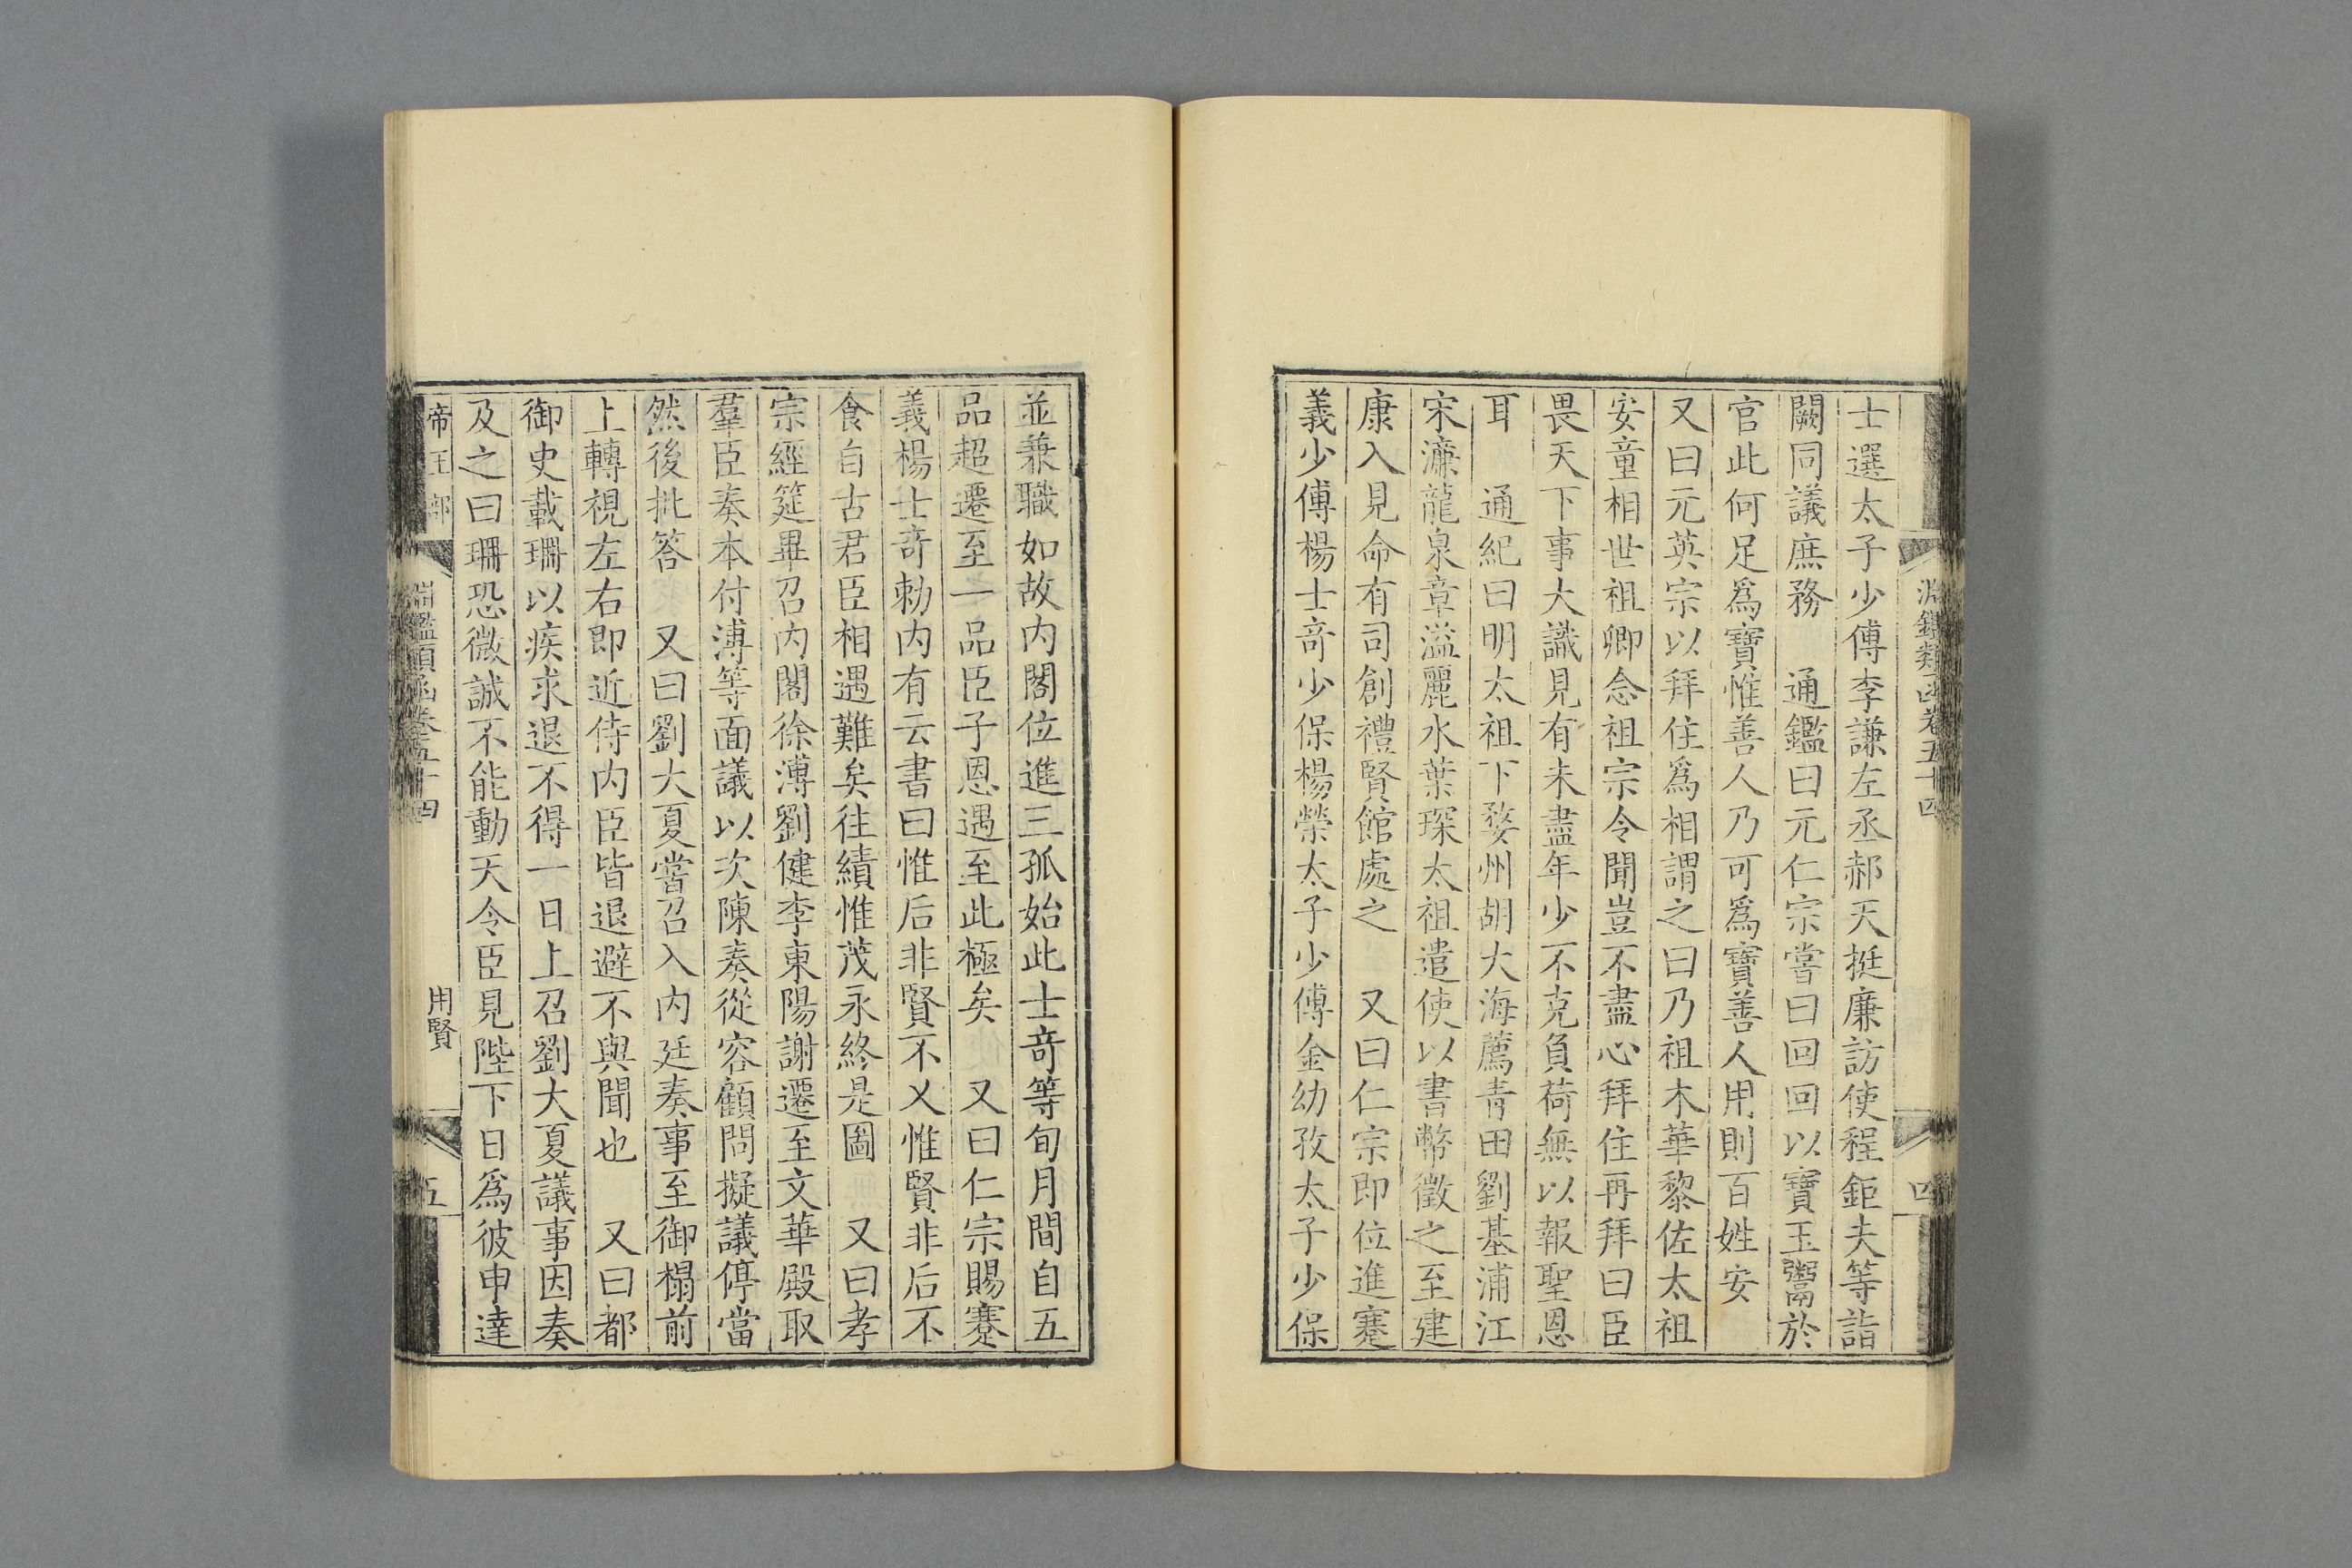 淵鑑類函卷五十四
四
士選太子少傅李謙左丞郝天挺廉訪使程鉅夫等詣
闕同議庶務　通鑑曰元仁宗嘗曰回回以寶玉鬻於
官此何足爲寶惟善人乃可爲寶善人用則百姓安
又曰元英宗以拜住爲相謂之曰乃祖木華黎佐太祖
安童相世祖卿念祖宗令聞豈不盡心拜住再拜曰臣
畏天下事大識見有未盡年少不克負荷無以報聖恩
耳　通紀曰明太祖下婺州胡大海薦青田劉基浦江
宋濂龍泉章溢麗水葉琛太祖遣使以書幣徵之至建
康入見命有司創禮賢館處之　又曰仁宗即位進蹇
義少傅楊士奇少保楊榮太子少傅金幼孜太子少保
並兼職如故内閣位進三孤始此士奇等旬月間自五
品超遷至一品臣子恩遇至此極矣　又曰仁宗賜蹇
義楊士奇勅内有云書曰惟后非賢不乂惟賢非后不
食自古君臣相遇難矣往績惟茂永終是圖　又曰孝
宗經筵畢召内閣徐溥劉健李東陽謝遷至文華殿取
羣臣奏本付溥等面議以次陳奏從容顧問擬議停當
然後批答　又曰劉大夏嘗召入内廷奏事至御榻前
上轉視左右即近侍内臣皆退避不與聞也　又曰都
御史戴珊以疾求退不得一日上召劉大夏議事因奏
及之曰珊恐微誠不能動天令臣見陛下日爲彼申達
帝王部
淵鑑類函卷五十四
用賢
五